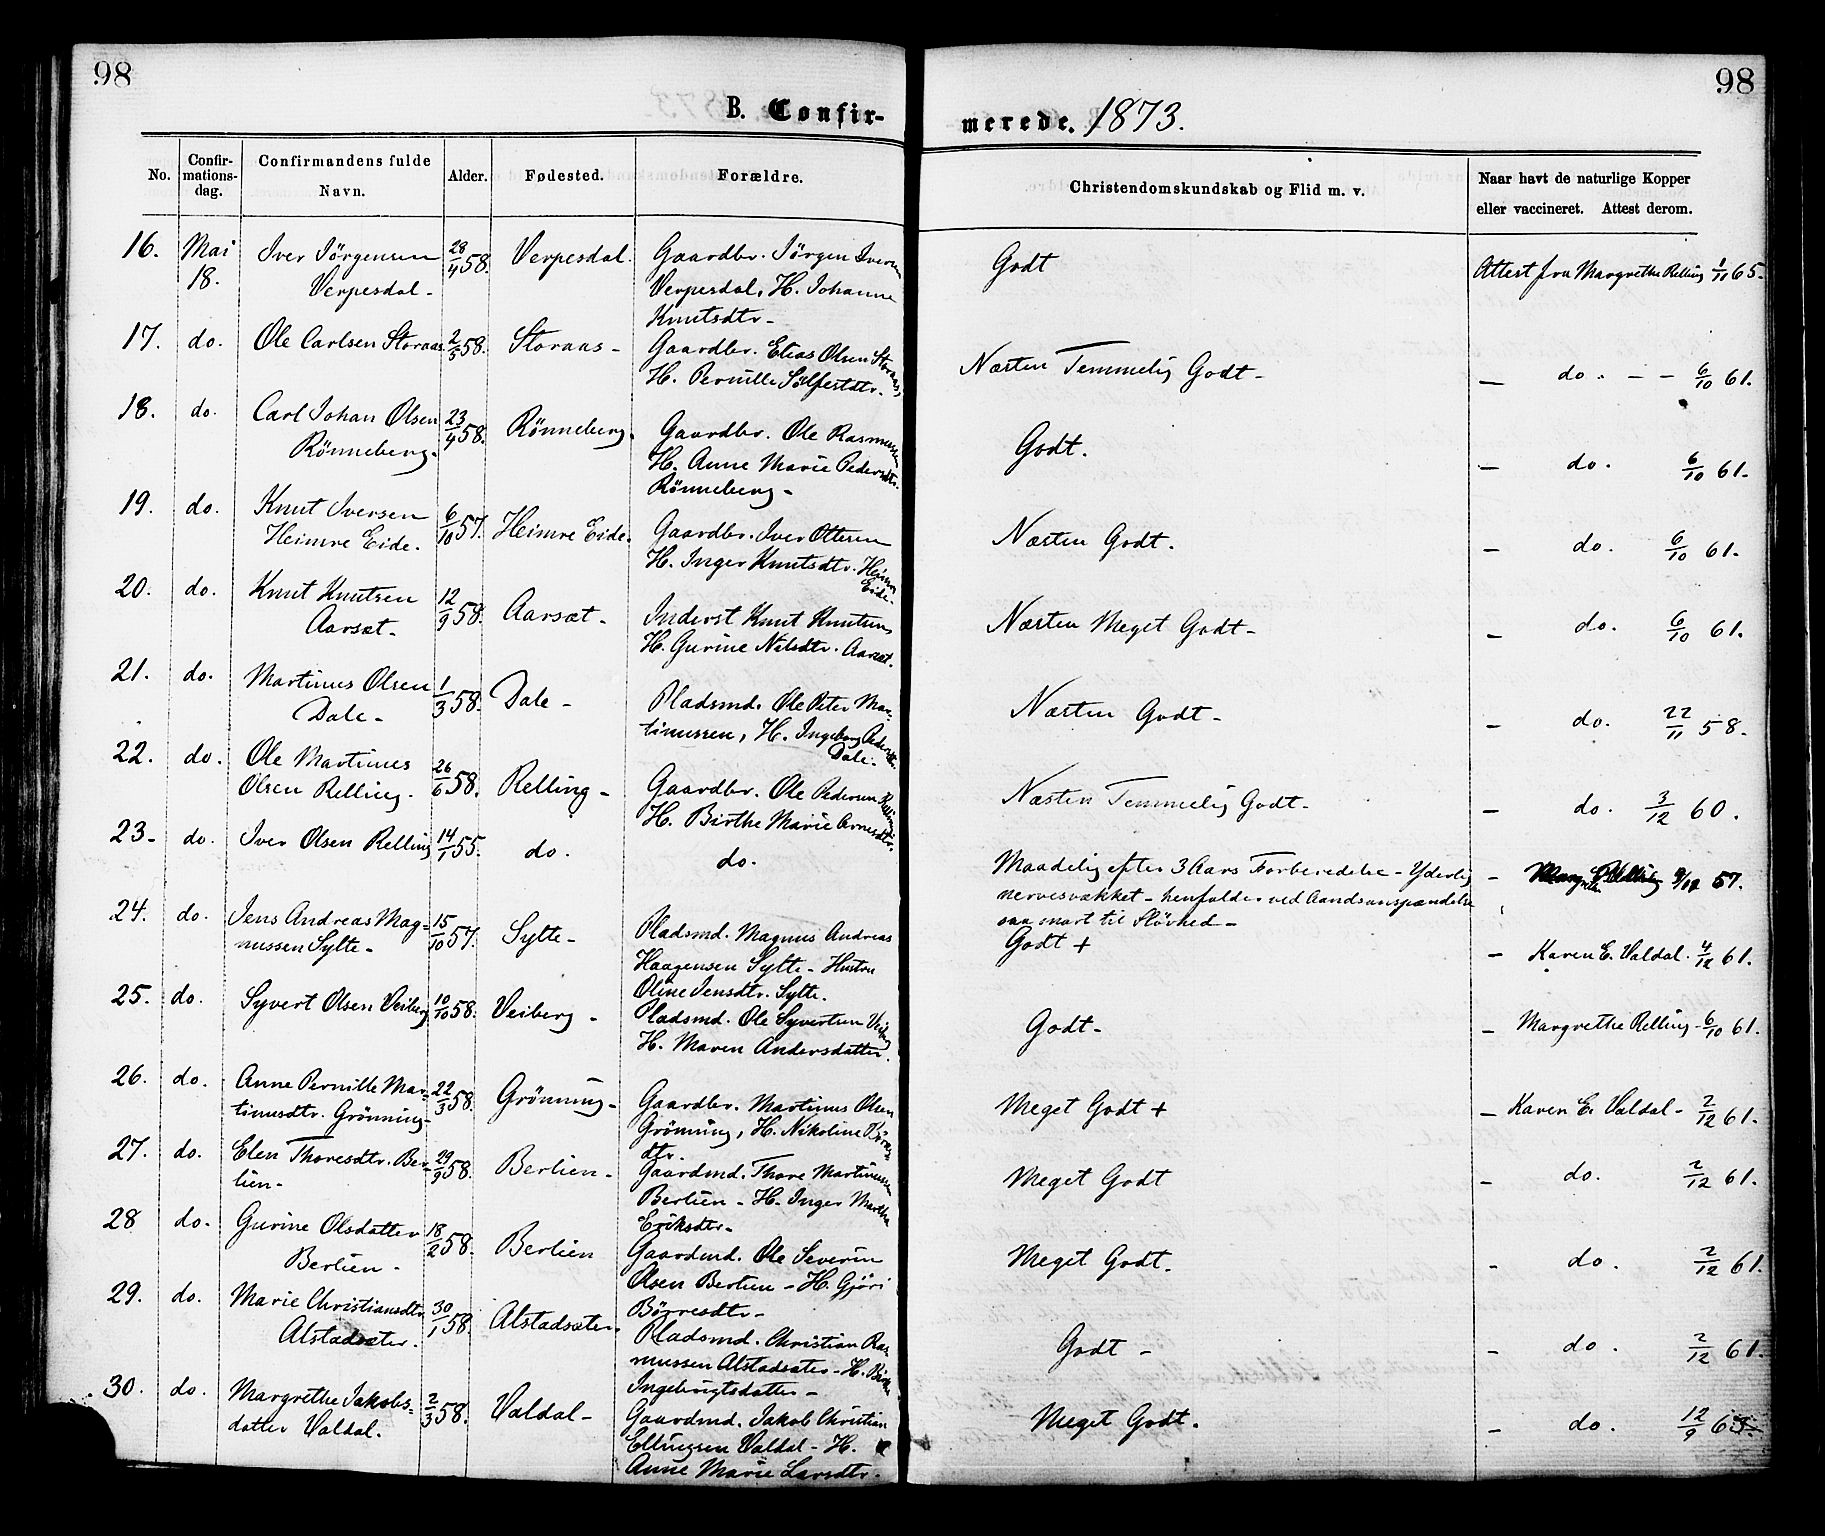 98
98
B. Confir-
merede. 1873.
No.
Confir-
mations-
dag.
Confirmandens fulde
Navn.
Alder.
Fødested.
Forældre.
Christendomskundskab og Flid m. v.
Naar havt de naturlige Kopper
eller vaccineret. Attest derom.
16. Mai Iver Jörgensen 28/4 58. Verpesdal. Gaardbr. Jörgen Iversen Godt Attest fra Margrethe Relling 1/11 65.
18. Verpesdal. Verpesdal, H. Johanne
Knutsdtr.
17. do. Ole Carlsen Storaas 2/5 58. Storaas Gaardbr. Elias Olsen Storaas, Næsten Temmelig Godt. — do. — — 6/10 61.
H. Pernille Sölfestdtr.
18. do. Carl Johan Olsen 23/4 58. Rönneberg. Gaardbr. Ole Rasmussen Godt. — do. 6/10 61.
Rönneberg. H. Anne Marie Pedersdtr.
Rönneberg
19. do. Knut Iversen 6/10 57. Heimre Eide. Gaardbr. Iver Ottesen Næsten Godt. — do. 6/10 61.
Heimre Eide. H. Inger Knutsdtr. Heimre
Eide.
20. do. Knut Knutsen 12/9 58. Aarsæt. Inderst Knut Knutsens Næsten Meget Godt — do. 6/10 61.
Aarsæt. H. Gurine Nilsdtr. Aarsæt.
21. do. Martinus Olsen 1/3 58. Dale Pladsmd. Ole Peter Mar- Næsten Godt — do. 22/11 58.
Dale tinussen, H. Ingeborg Pedersdtr.
Dale.
22. do. Ole Martinus 26/6 58. Relling Gaardbr. Ole Pedersen Relling Næsten Temmelig Godt. — do. 3/12 60.
Olsen Relling. H. Birthe Marie Arnesdtr.
23 do. Iver Olsen Relling 14/1 55. do. do. Maadelig efter 3 Aars Forberedelse — Yderlig — Relling 57.
nervesvækket — henfalder ved Aandsanspændelse
saa snart til Slövhed —
24. do. Jens Andreas Mag- 15/10 57. Sylte Pladsmd. Magnus Andreas Godt + — Karen E. Valdal. 4/12 61.
nussen Sylte Haagensen Sylte — Hustru
Oline Jensdtr. Sylte.
25. do. Syvert Olsen Veiberg 10/10 58. Veiberg Pladsmd. Ole Syvertsen Veiberg Godt — Margrethe Relling 6/10 61.
H. Maren Andersdatter.
26. do. Anne Pernille Mar- 22/3 58. Grönning Gaardbr. Martinus Olsen Meget Godt + — Karen E. Valdal 2/12 61.
tinusdtr. Grönning Grönning, H. Nikoline Börres
dtr.
27. do. Elen Thoresdtr. Ber- 29/9 58. Berlien Gaardmd. Thore Martinussen Meget Godt — do. 2/12 61.
lien. Berlien — H. Inger Martha
Eriksdtr.
28 do. Gurine Olsdatter 18/2 58. Berlien Gaardmd. Ole Severin Meget Godt. — do. 2/12 61.
Berlien Olsen Berlien — H. Gjöri
Börresdtr.
29. do. Marie Christiansdtr. 30/1 58. Alstadsæter. Pladsmd. Christian Ras- Godt — do. 2/12 61.
Alstadsæter. mussen Alstadsæter — H.
Ingebrigtsdatter
30. do. Margrethe Jakobs- 2/3 58. Valdal Gaardmd. Jakob Christian Meget Godt. — do. 12/9
datter Valdal. Ellingsen Valdal — H.
Anne Marie Larsdtr.